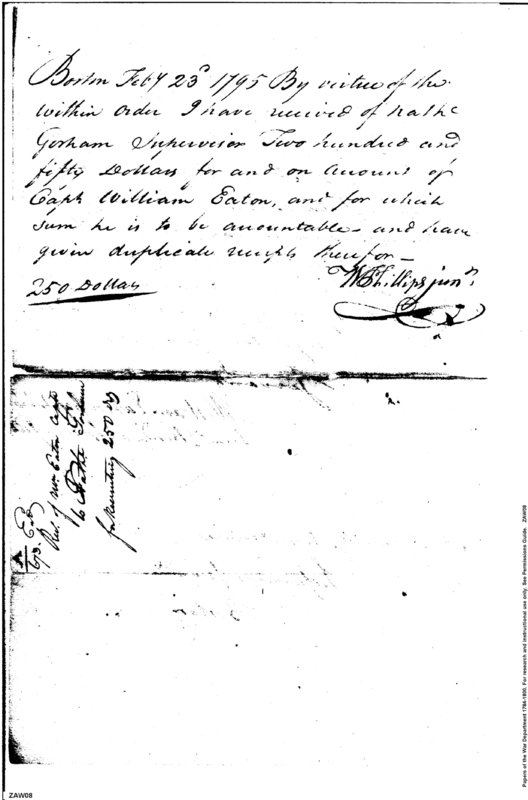 Boston Feby 23d 1795 By virtue of the
within order I have received of Nathl
Gorham Supervisor Two hundred and
fifty Dollars for and on Account of
Capt William Eaton, and for which
sum he is to be accountable and have
given duplicate receipts therefor
250 Dollars
W Phillips junr
Rect of Wm Eaton Capt
to Nathl Gorham
for Recruiting 250
Papers of the War Department 1784-1800. For research and instructional use only. See Permissions Guide. ZAW08
ZAW08